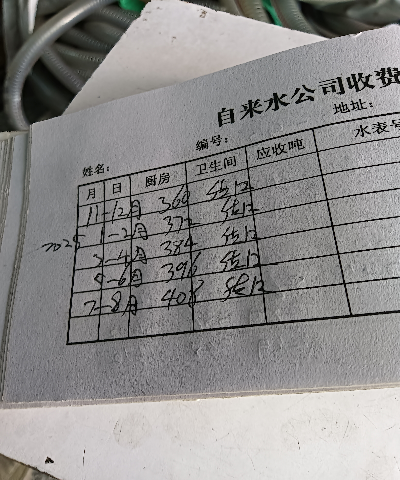 自来水公司收费
姓名： 编号： 地址：
月 日 厨房 卫生间 应收吨 水表号
11-12月 360
2025 1-2月 372
3-4月 384
5-6月 396
7-8月 408